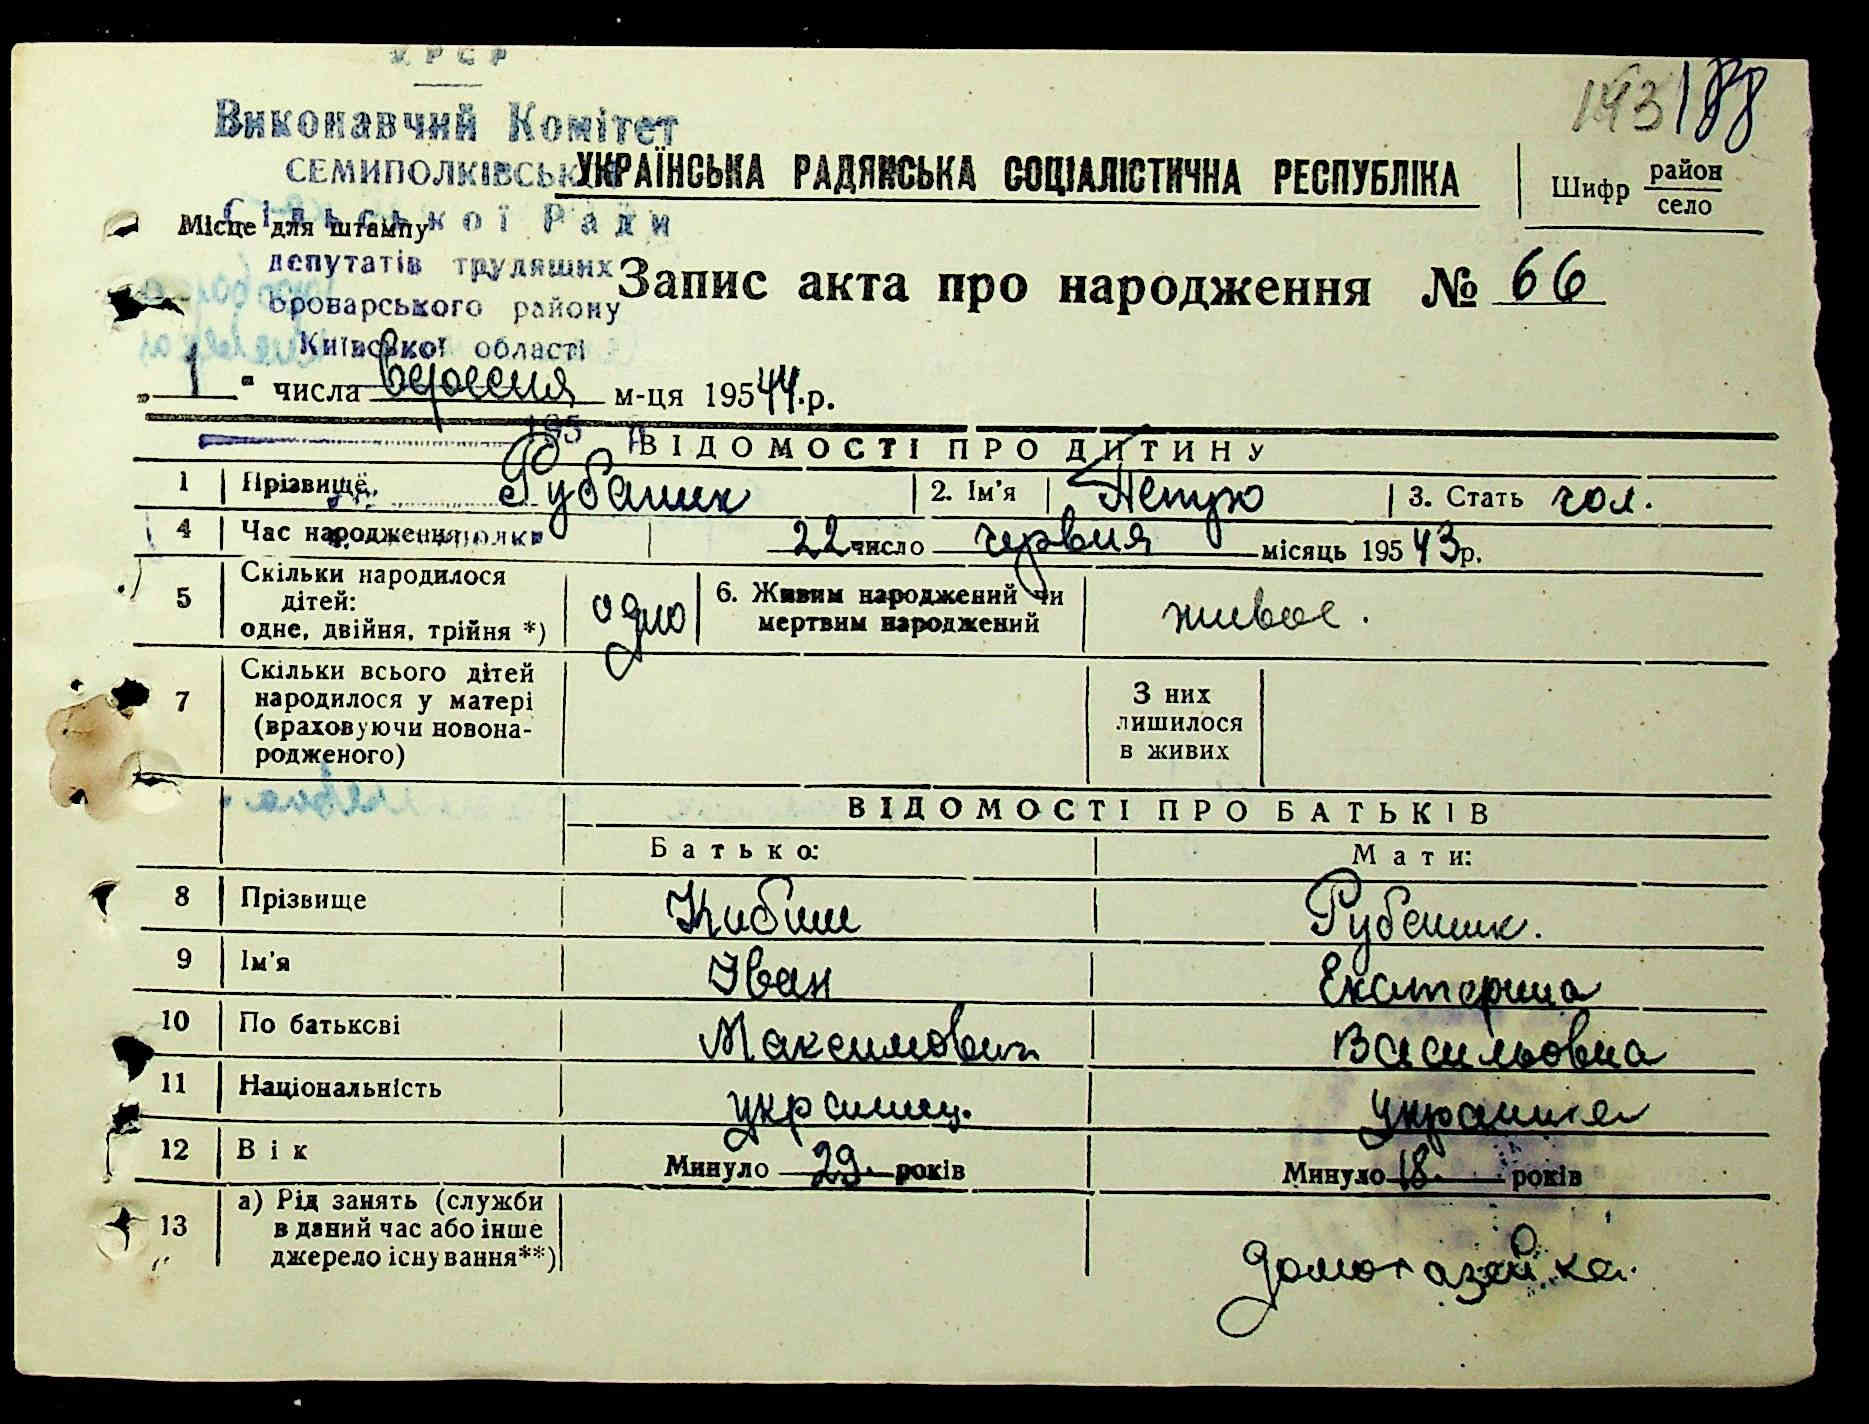 УРСР
143 188
Виконавчий Комітет
СЕМИПОЛКІВСЬК
УКРАЇНСЬКА РАДЯНСЬКА СОЦІАЛІСТИЧНА РЕСПУБЛІКА
Шифр район
село
Сільської Ради
Місце для штампу
депутатів трудящих
Броварського району
Запис акта про народження № 66
Київської області
„ 1 " числа вересня м-ця 195 44.р.
195
ВІДОМОСТІ ПРО ДИТИНУ
1 Прізвище Рубаник 2. Ім'я Петро 3. Стать чол.
4 Час народження 22 число червня місяць 195 43р.
5 Скільки народилося
дітей:
одне, двійня, трійня *) одно
6. Живим народжений чи
мертвим народжений живое.
7 Скільки всього дітей
народилося у матері
(враховуючи новона-
родженого)
З них
лишилося
в живих
ВІДОМОСТІ ПРО БАТЬКІВ
Батько: Мати:
8 Прізвище Кибиш Рубаник.
9 Ім'я Іван Екатерина
10 По батькові Максимович Васильовна
11 Національність украинец. украинка
12 Вік Минуло 29. років Минуло 18. років
13 а) Рід занять (служби
в даний час або інше
джерело існування**) домохазяйка.